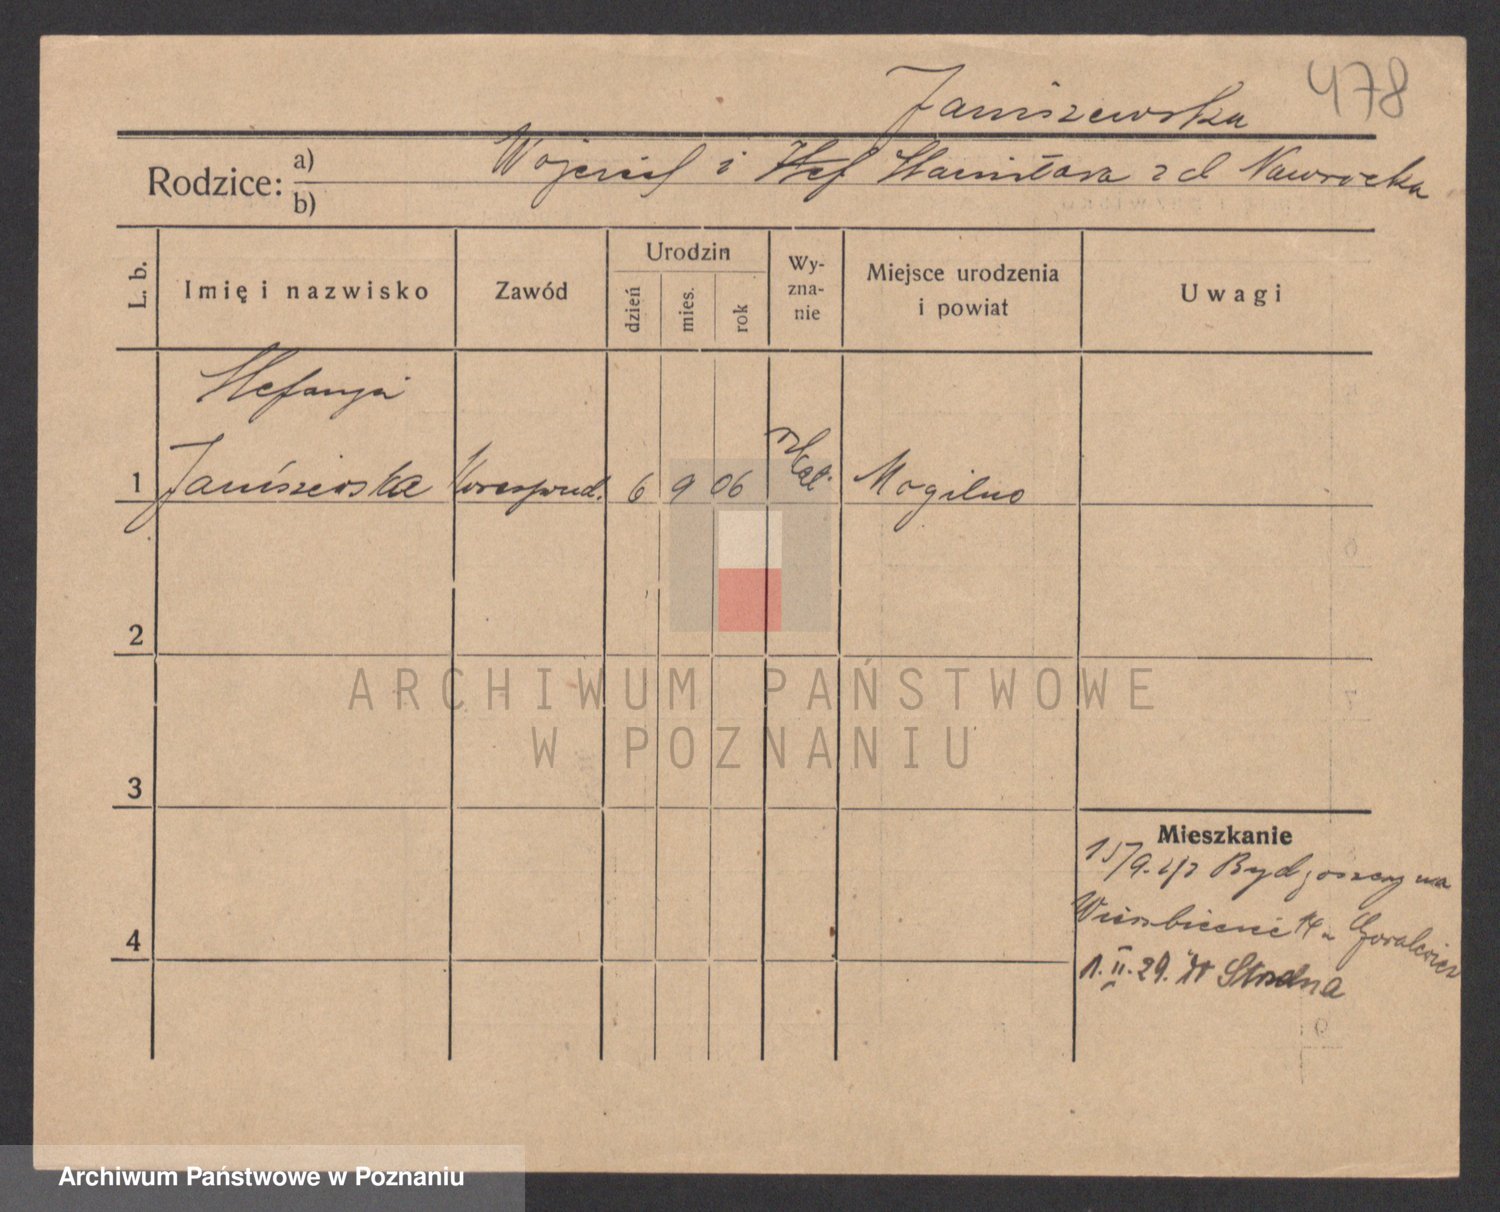 478
Janiszewska
Rodzice: a) Wojciech i Stef Stanisława z d Nawrocka
b)
L. b.
Imię i nazwisko
Zawód
Urodzin
dzień
mies.
rok
Wy-
zna-
nie
Miejsce urodzenia
i powiat
Uwagi
Stefanja
1 Janiszewska Korespond. 6 9 06 rz kat. Mogilno
2
ARCHIWUM PAŃSTWOWE
W POZNANIU
3
Mieszkanie
15/9. Bydgoszczy na
Wierzbięcic
4
1. II. 29.
Archiwum Państwowe w Poznaniu